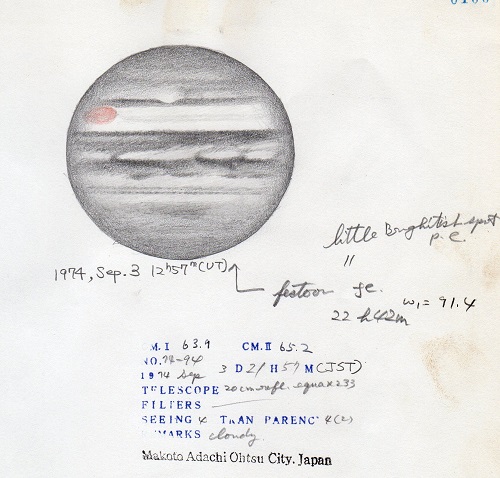 little Brightish spot
p.e.
"
1974, Sep. 3 12h57m(UT)
festoon fe.
22h42m ω₁ = 91.4
M.I 63.9 CM.II 65.2
NO.74-94
1974 Sep 3 D 21 H 57 M(JST)
TELESCOPE 20cm refl. equa x233
FILTERS
SEEING 4 TRAN PARENC 4(2)
MARKS cloudy.
Makoto Adachi Ohtsu City. Japan